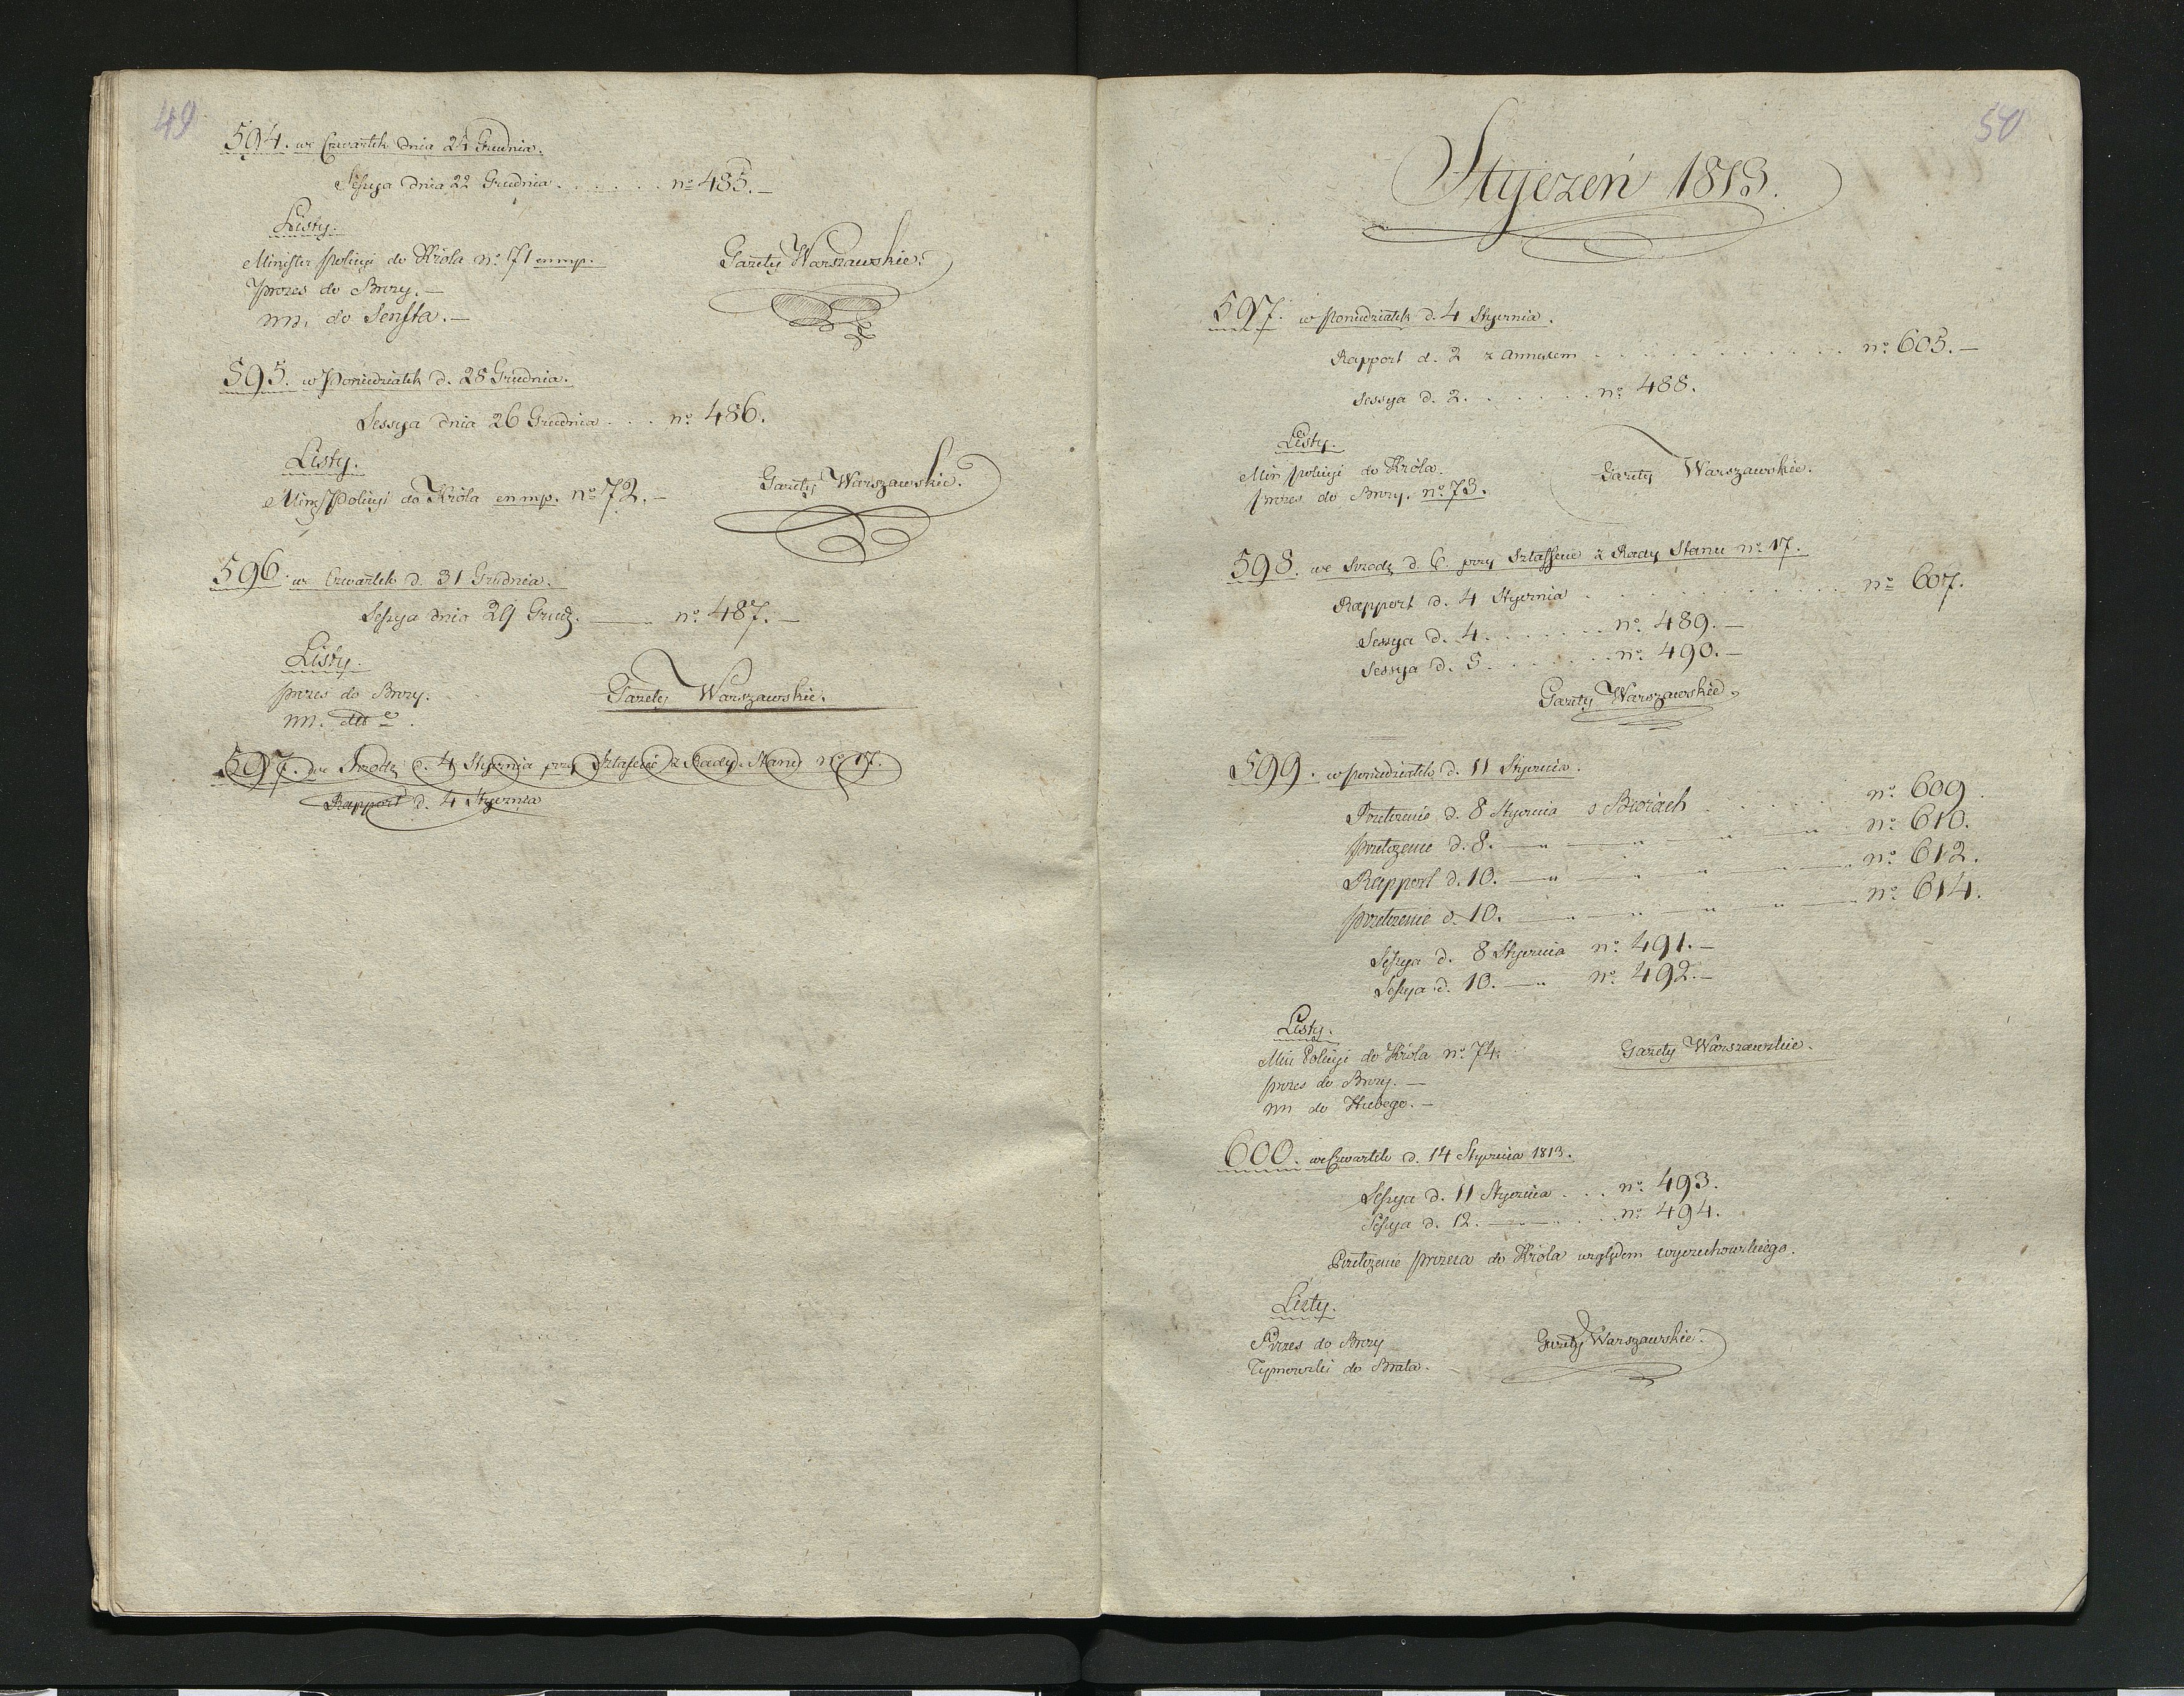 49
594. we Czwartek dnia 24 Grudnia.
Sessya dnia 22 Grudnia . . . . . . nº 485.—
Listy.
Minister Policyi do Króla nº 71 en mp.
Prezes do Brezy.—
nn. do Senfta.—
Gazety Warszawskie.
595. w Poniedziałek d. 28 Grudnia.
Sessya dnia 26 Grudnia . . . nº 486.
Listy.
Min. Policyi do Króla en mp. nº 72.—
Gazety Warszawskie.
596. we Czwartek d. 31 Grudnia.
Sessya dnia 29 Grud. — nº 487.—
Listy.
prezes do Brezy.
nn. dtto.
Gazety Warszawskie.
597. we Srodę d. 4 Stycznia przy Sztafecie z Rady Stanu nº 17.
Rapport d. 4 Stycznia
50
Styczeń 1813.
597. w Poniedziałek d. 4 Stycznia.
Rapport d. 2 z annexem . . . . . . . . . . nº 605.—
Sessya d. 2. . . . . . . nº 488.
Listy.
Min policyi do Króla.
prezes do Brezy. nº 73.
Gazety Warszawskie.
598. we Srodę d. 6 przy Sztaffecie z Rady Stanu nº 17.
Rapport d. 4 Stycznia . . . . . . . . . . nº 607.
Sessya d. 4. . . . . . . nº 489.—
Sessya d. 5. . . . . . . nº 490.—
Gazety Warszawskie.
599. w poniedziałek d. 11 Stycznia.
Przełożenie d. 8 Stycznia o . . . . . nº 609.
przełożenie d. 8. — " — " — " — " nº 610.
Rapport d. 10. — " — " — " — " nº 612.
przełożenie d. 10. — " — " — " — " nº 614.
Sessya d. 8 Stycznia nº 491.—
Sessya d. 10. — " nº 492.—
Listy.
Min Policyi do Króla nº 74.
prezes do Brezy.—
nn do Hubego.—
Gazety Warszawskie.
600. we Czwartek d. 14 Stycznia 1813.
Sessya d. 11 Stycznia . . . nº 493.
Sessya d. 12. — " — . . . nº 494.
Przełożenie prezesa do Króla względem wyczechowskiego.
Listy.
Prezes do Brezy
Tymowski do Brata.
Gazety Warszawskie.